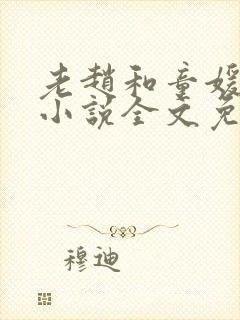 老赵和童媛
小说全文免
穆迪